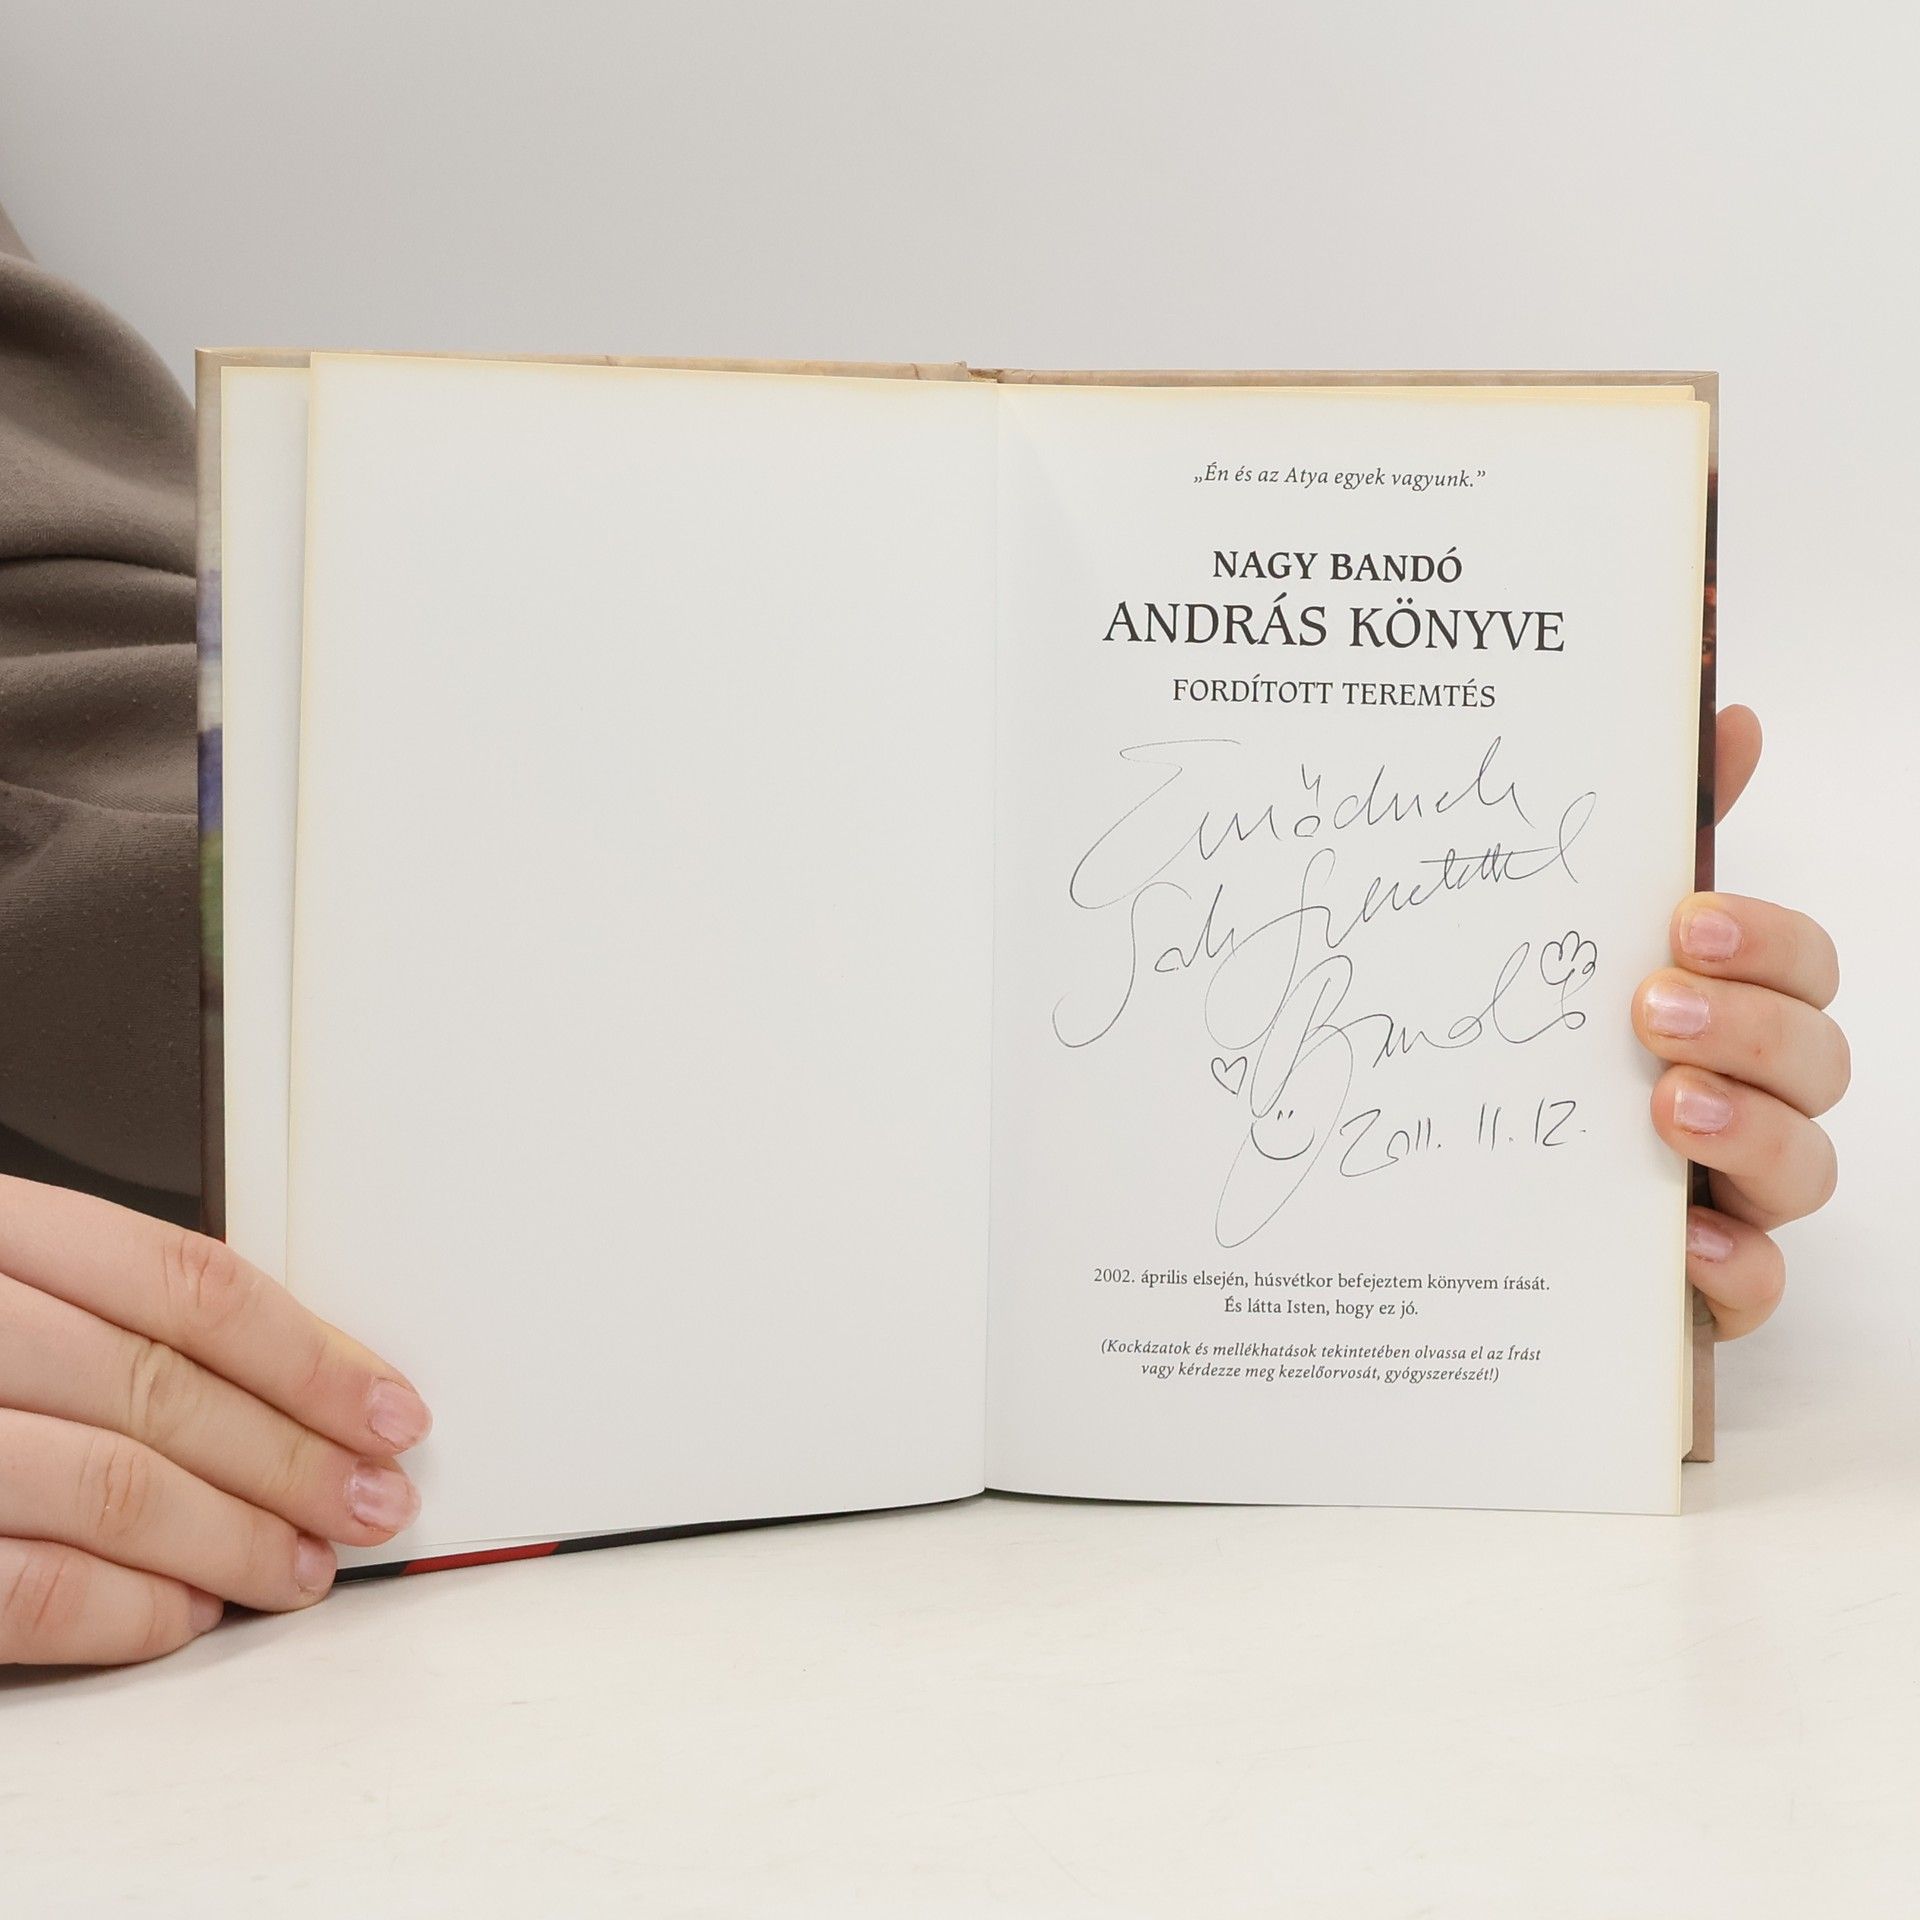 „Én és az Atya egyek vagyunk.”
NAGY BANDÓ
ANDRÁS KÖNYVE
FORDÍTOTT TEREMTÉS
Emődnek
Sok szeretettel
Bandó
2011. 11. 12.
2002. április elsején, húsvétkor befejeztem könyvem írását.
És látta Isten, hogy ez jó.
(Kockázatok és mellékhatások tekintetében olvassa el az Írást
vagy kérdezze meg kezelőorvosát, gyógyszerészét!)